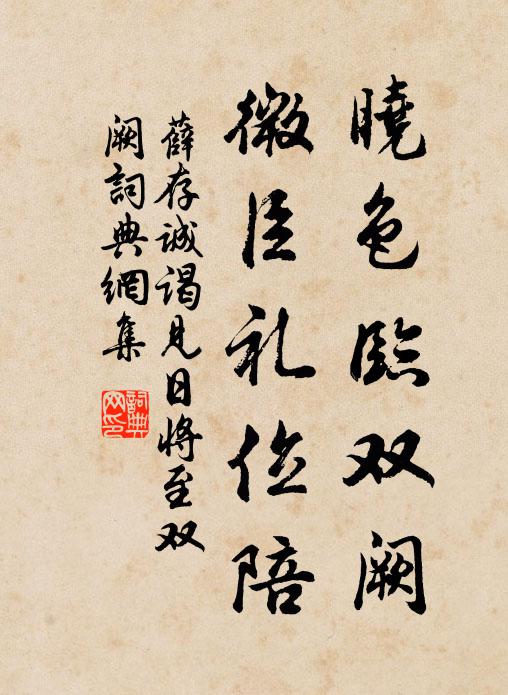 曉色臨双阙
微臣礼位陪
薛存诚谒見日将至双
阙詞典網集
詞典网印